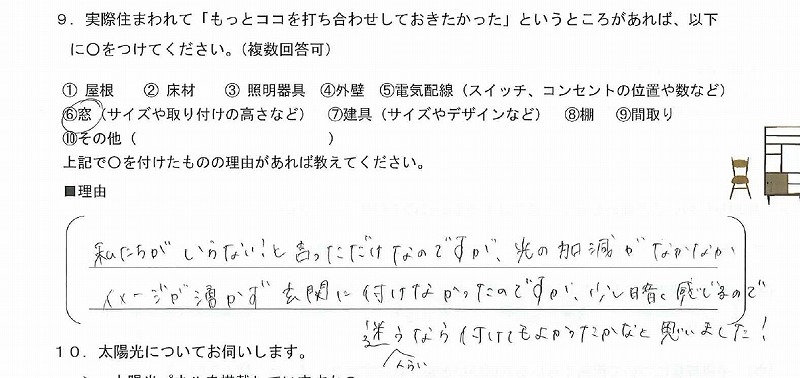 ９．実際住まわれて「もっとココを打ち合わせしておきたかった」というところがあれば、以下
に〇をつけてください。（複数回答可）
① 屋根　② 床材　③ 照明器具　④外壁　⑤電気配線（スイッチ、コンセントの位置や数など）
⑥窓（サイズや取り付けの高さなど）　⑦建具（サイズやデザインなど）　⑧棚　⑨間取り
⑩その他（　　　　　　　　　　　　　）
上記で〇を付けたものの理由があれば教えてください。
■理由
私たちが いらない！と言っただけなのですが、光の加減がなかなか
イメージが湧かず 玄関に付けなかったのですが、少し暗く感じるので
迷うなら付けてもよかったかなと思いました！
１０．太陽光についてお伺いします。